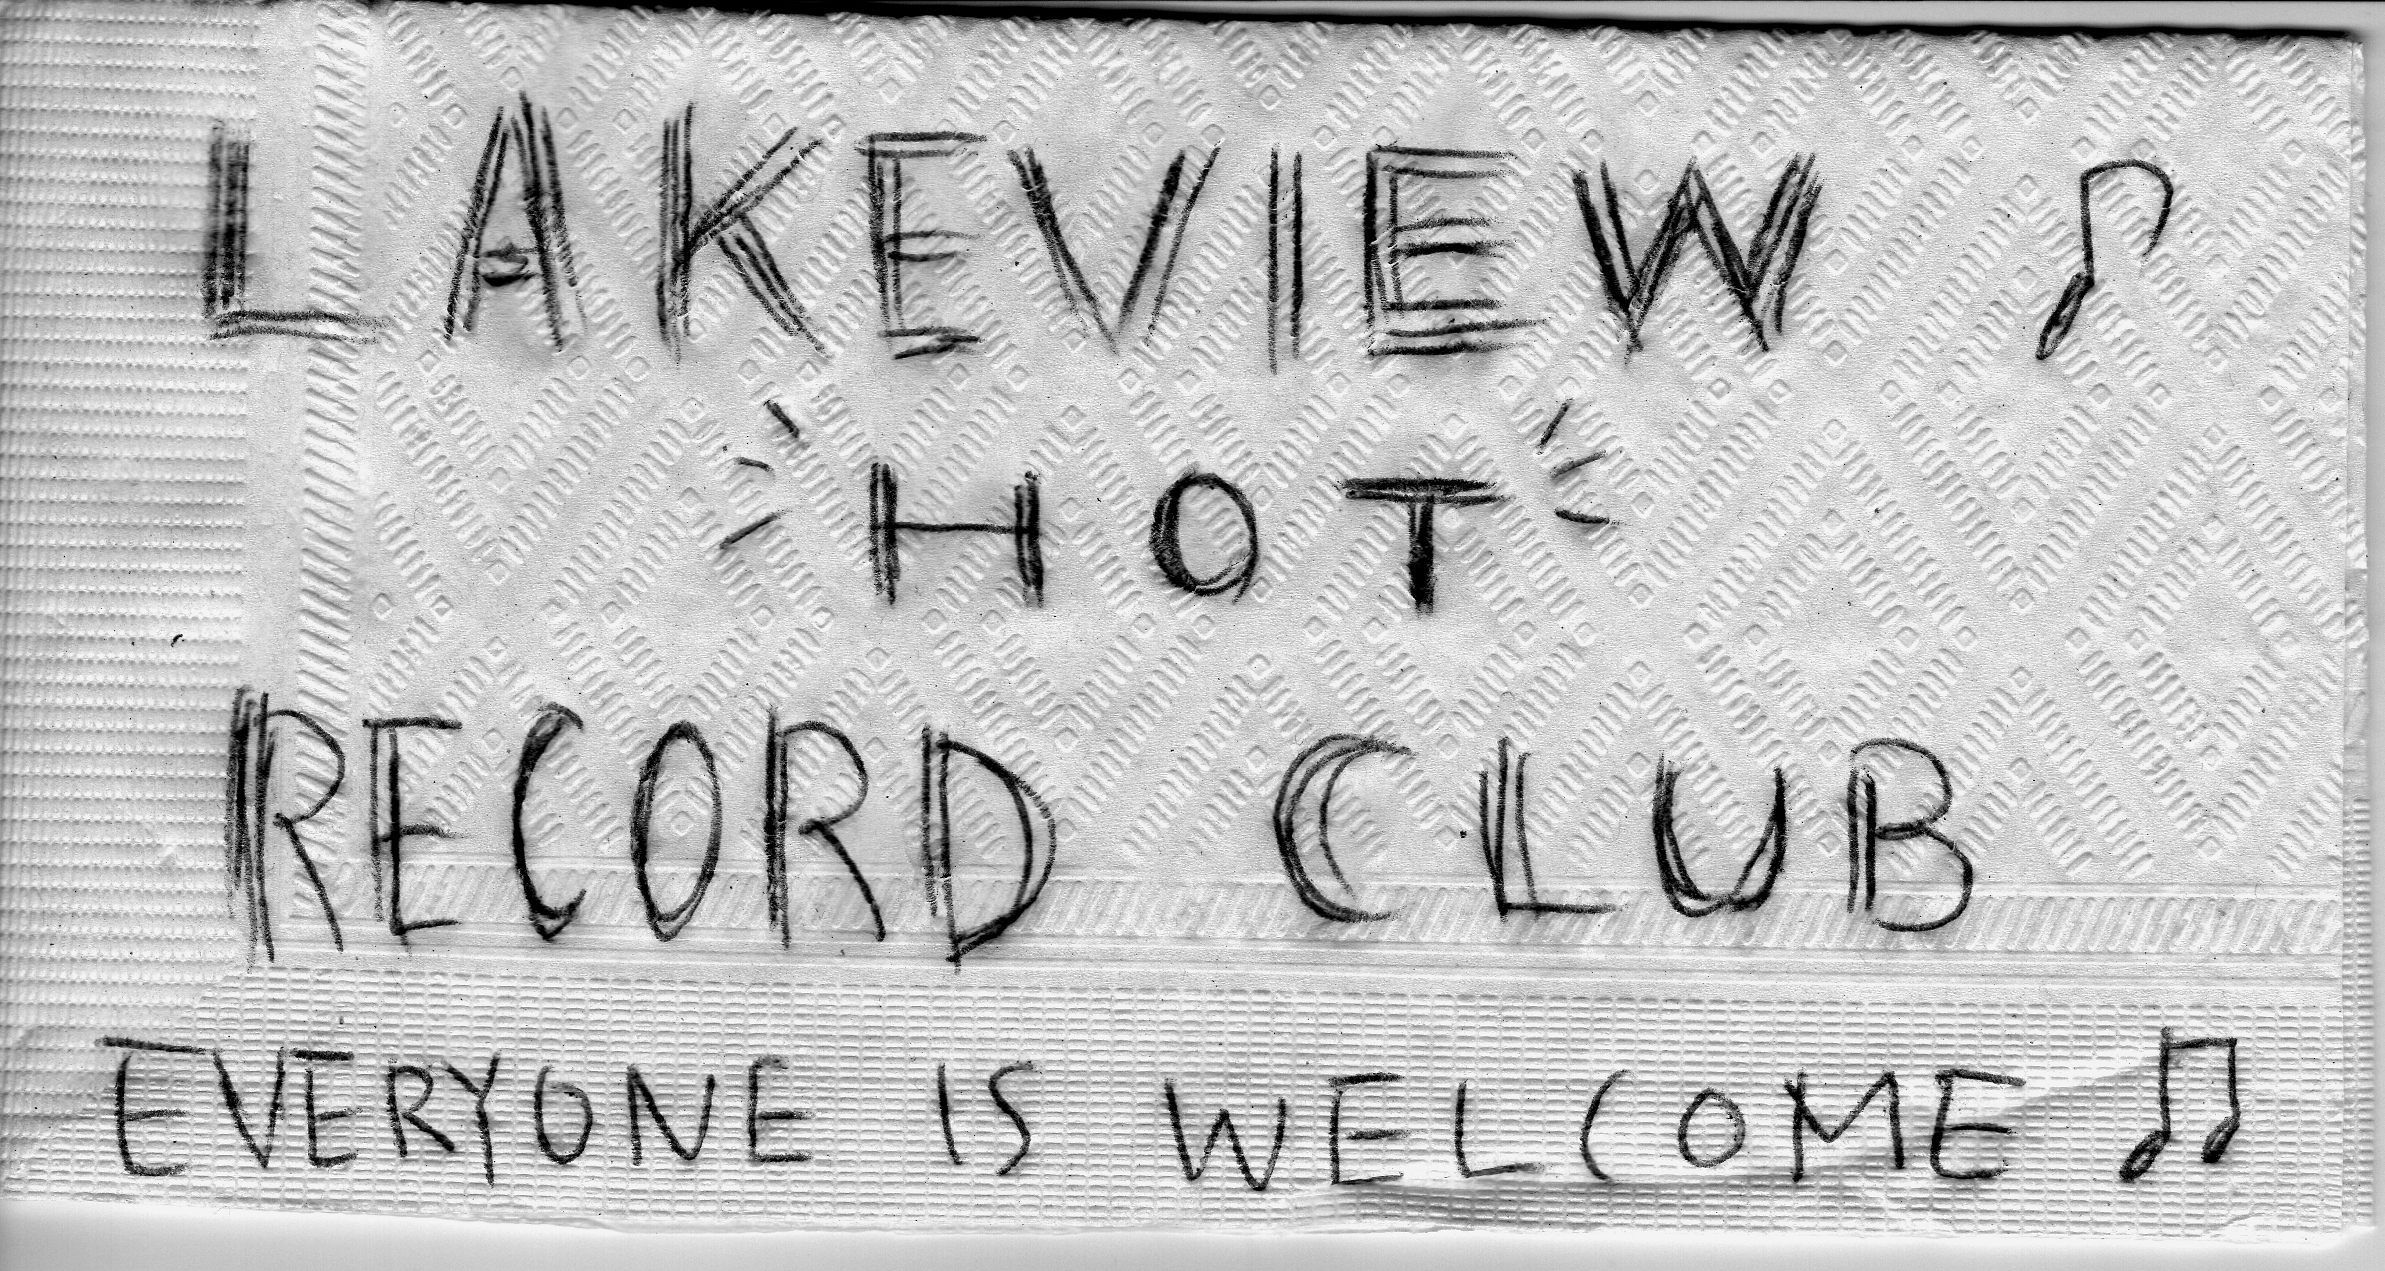 LAKEVIEW
HOT
RECORD CLUB
EVERYONE IS WELCOME